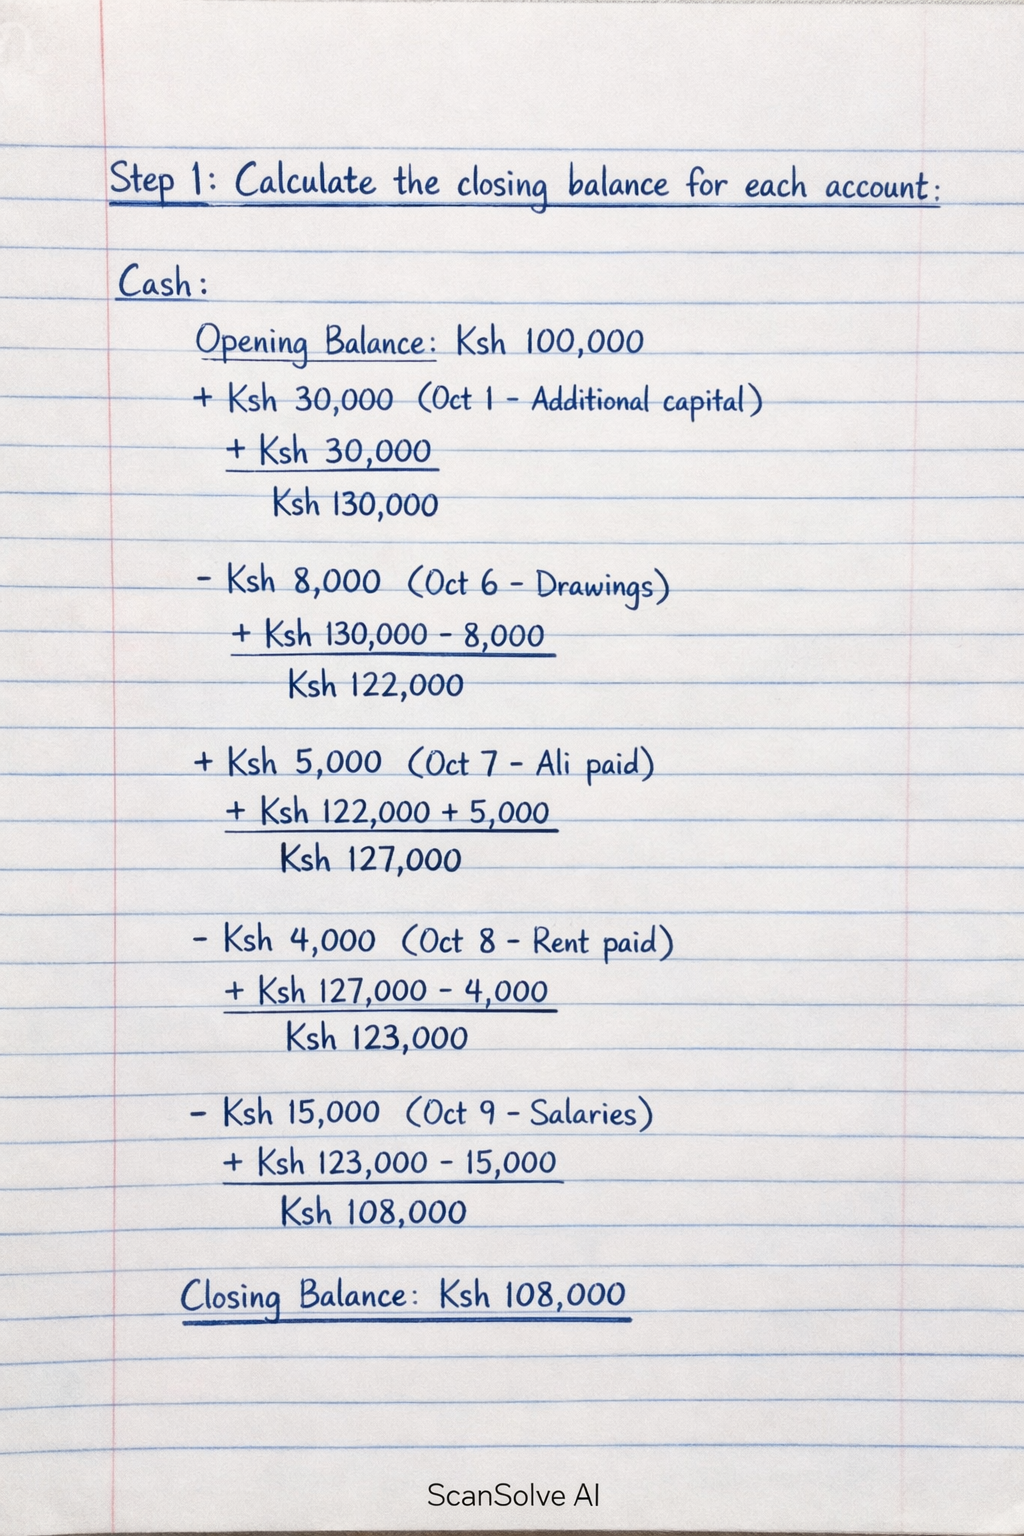 Step 1: Calculate the closing balance for each account:
Cash:
Opening Balance: Ksh 100,000
+ Ksh 30,000 (Oct 1 - Additional capital)
+ Ksh 30,000
Ksh 130,000
- Ksh 8,000 (Oct 6 - Drawings)
+ Ksh 130,000 - 8,000
Ksh 122,000
+ Ksh 5,000 (Oct 7 - Ali paid)
+ Ksh 122,000 + 5,000
Ksh 127,000
- Ksh 4,000 (Oct 8 - Rent paid)
+ Ksh 127,000 - 4,000
Ksh 123,000
- Ksh 15,000 (Oct 9 - Salaries)
+ Ksh 123,000 - 15,000
Ksh 108,000
Closing Balance: Ksh 108,000
ScanSolve AI